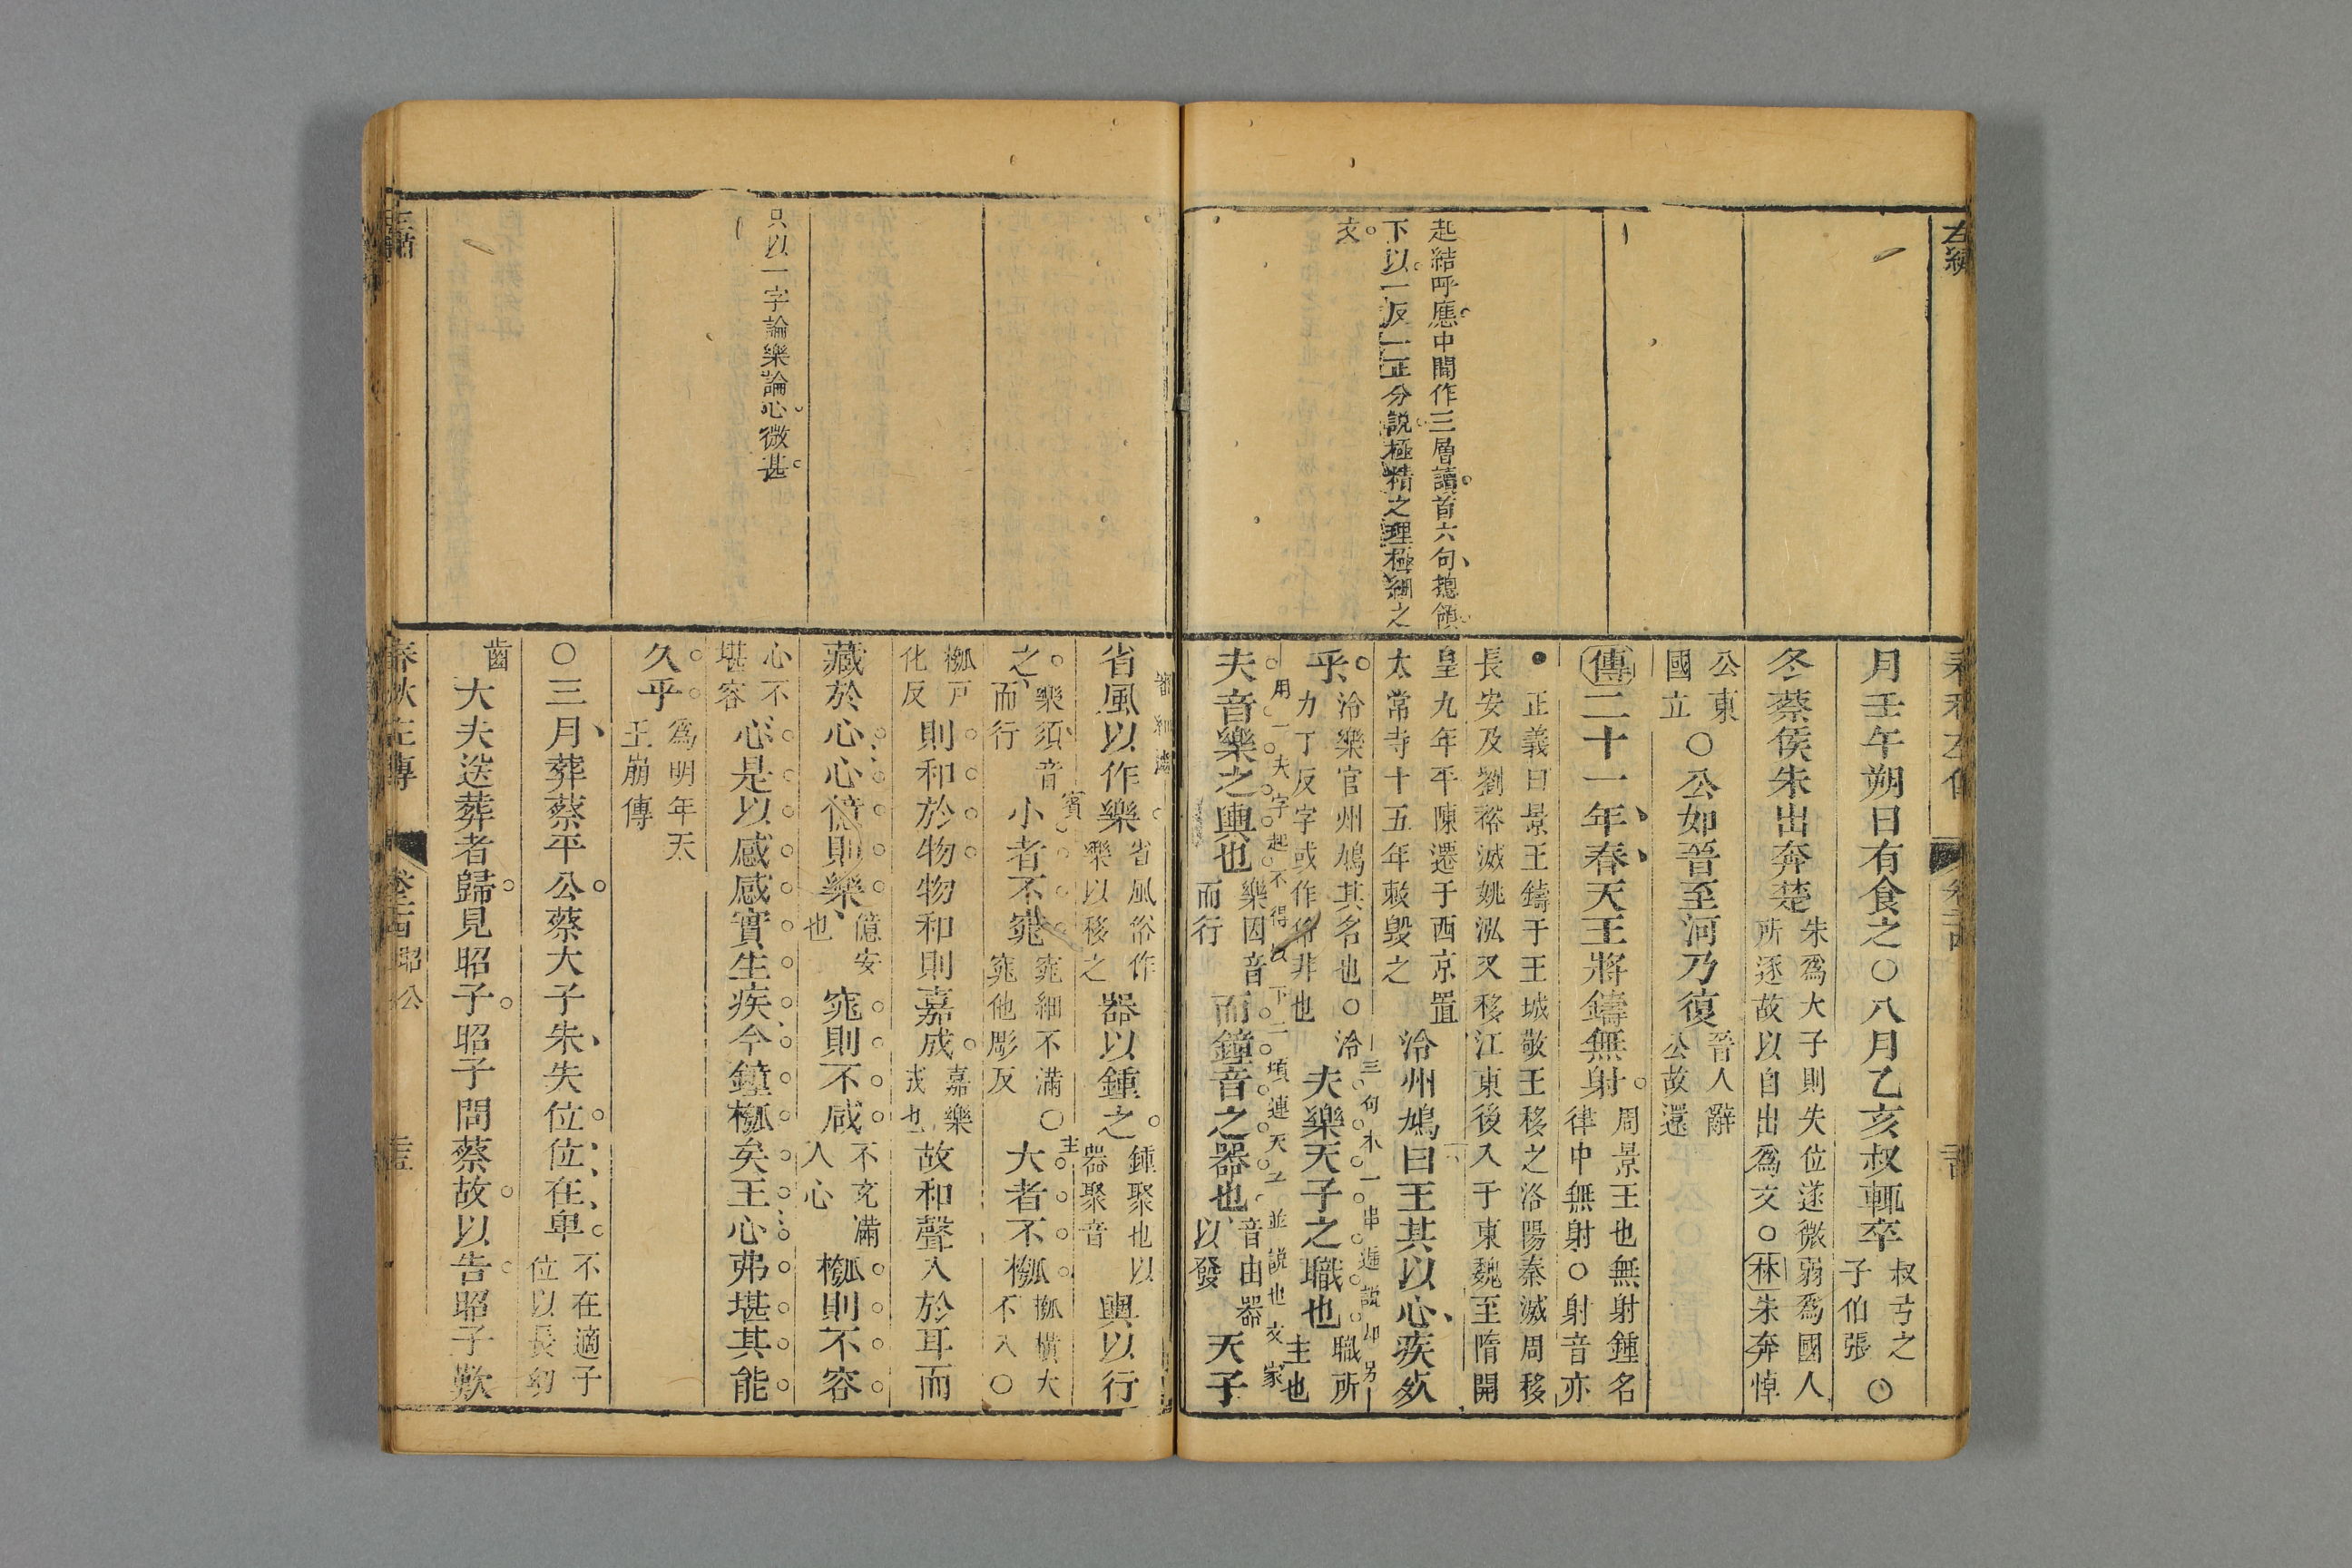 左繡
起結呼應中間作三層讀首六句摠領
下以一反一正分說極精之理極細之
文
春秋左傳
月壬午朔日有食之○八月乙亥叔輒卒叔弓之子伯張○
冬蔡侯朱出奔楚朱爲大子則失位遂微弱爲國人所逐故以自出爲文○林朱奔悼
公東國立○公如晉至河乃復晉人辭公故還
傳二十一年春天王將鑄無射周景王也無射鍾名律中無射○射音亦
●正義曰景王鑄于王城敬王移之洛陽秦滅周移長安及劉裕滅姚泓又移江東後入于東魏至隋開
皇九年平陳遷于西京置太常寺十五年敕毀之泠州鳩曰王其以心疾死
乎泠樂官州鳩其名也○泠力丁反字或作伶非也夫樂天子之職也職所主也
三句水一串遞說却另
夫音樂之輿也樂因音而行而鐘音之器也音由器以發天子
用一夫字起不得以下二項連天子並說也文家
賓主審細處
省風以作樂省風俗作樂以移之器以鍾之鍾聚也以器聚音輿以行
之樂須音而行小者不窕窕細不滿○窕他彫反大者不槬槬橫大不入○
槬戸化反則和於物物和則嘉成嘉樂成也故和聲入於耳而
藏於心心億則樂億安也窕則不咸不充滿人心槬則不容
心不堪容心是以感感實生疾今鐘槬矣王心弗堪其能
久乎爲明年天王崩傳
○三月葬蔡平公蔡大子朱失位位在卑不在適子位以長幼
齒大夫送葬者歸見昭子昭子問蔡故以告昭子歎
只以一字論樂論心微甚
左繡
春秋左傳
昭公